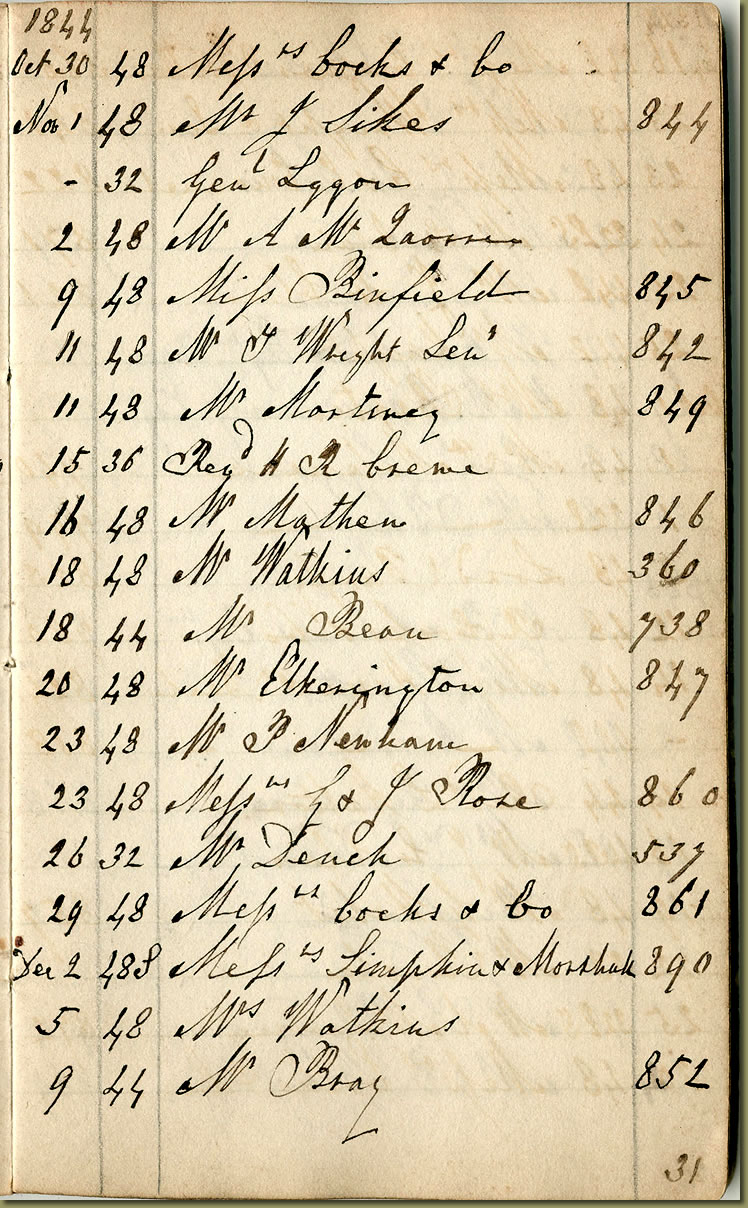 1844
Oct 30 48 Messrs Cocks & Co
Nov 1 48 Mr J Sikes 844
- 32 Genl Lygon
2 48 Mr A Mc
9 48 Miss Binfield 845
11 48 Mr T Wright Senr 842
11 48 Mr Mortimer 849
15 36 Revd H R Crewe
16 48 Mr Mathew 846
18 48 Mr Watkins 360
18 44 Mr Bean 738
20 48 Mr Etherington 847
23 48 Mr P Newham
23 48 Messrs G & J Rose 860
26 32 Mr Dench 537
29 48 Messrs Cocks & Co 861
Dec 2 48S Messrs Simpkin & Marshall 890
5 48 Mrs Watkins
9 44 Mr Bray 852
31